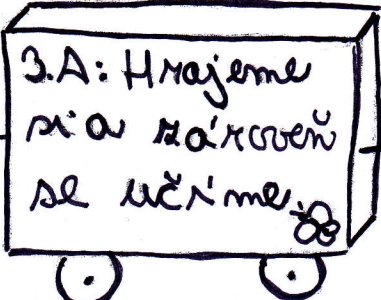 3.A: Hrajeme
si a zároveň
se učíme.